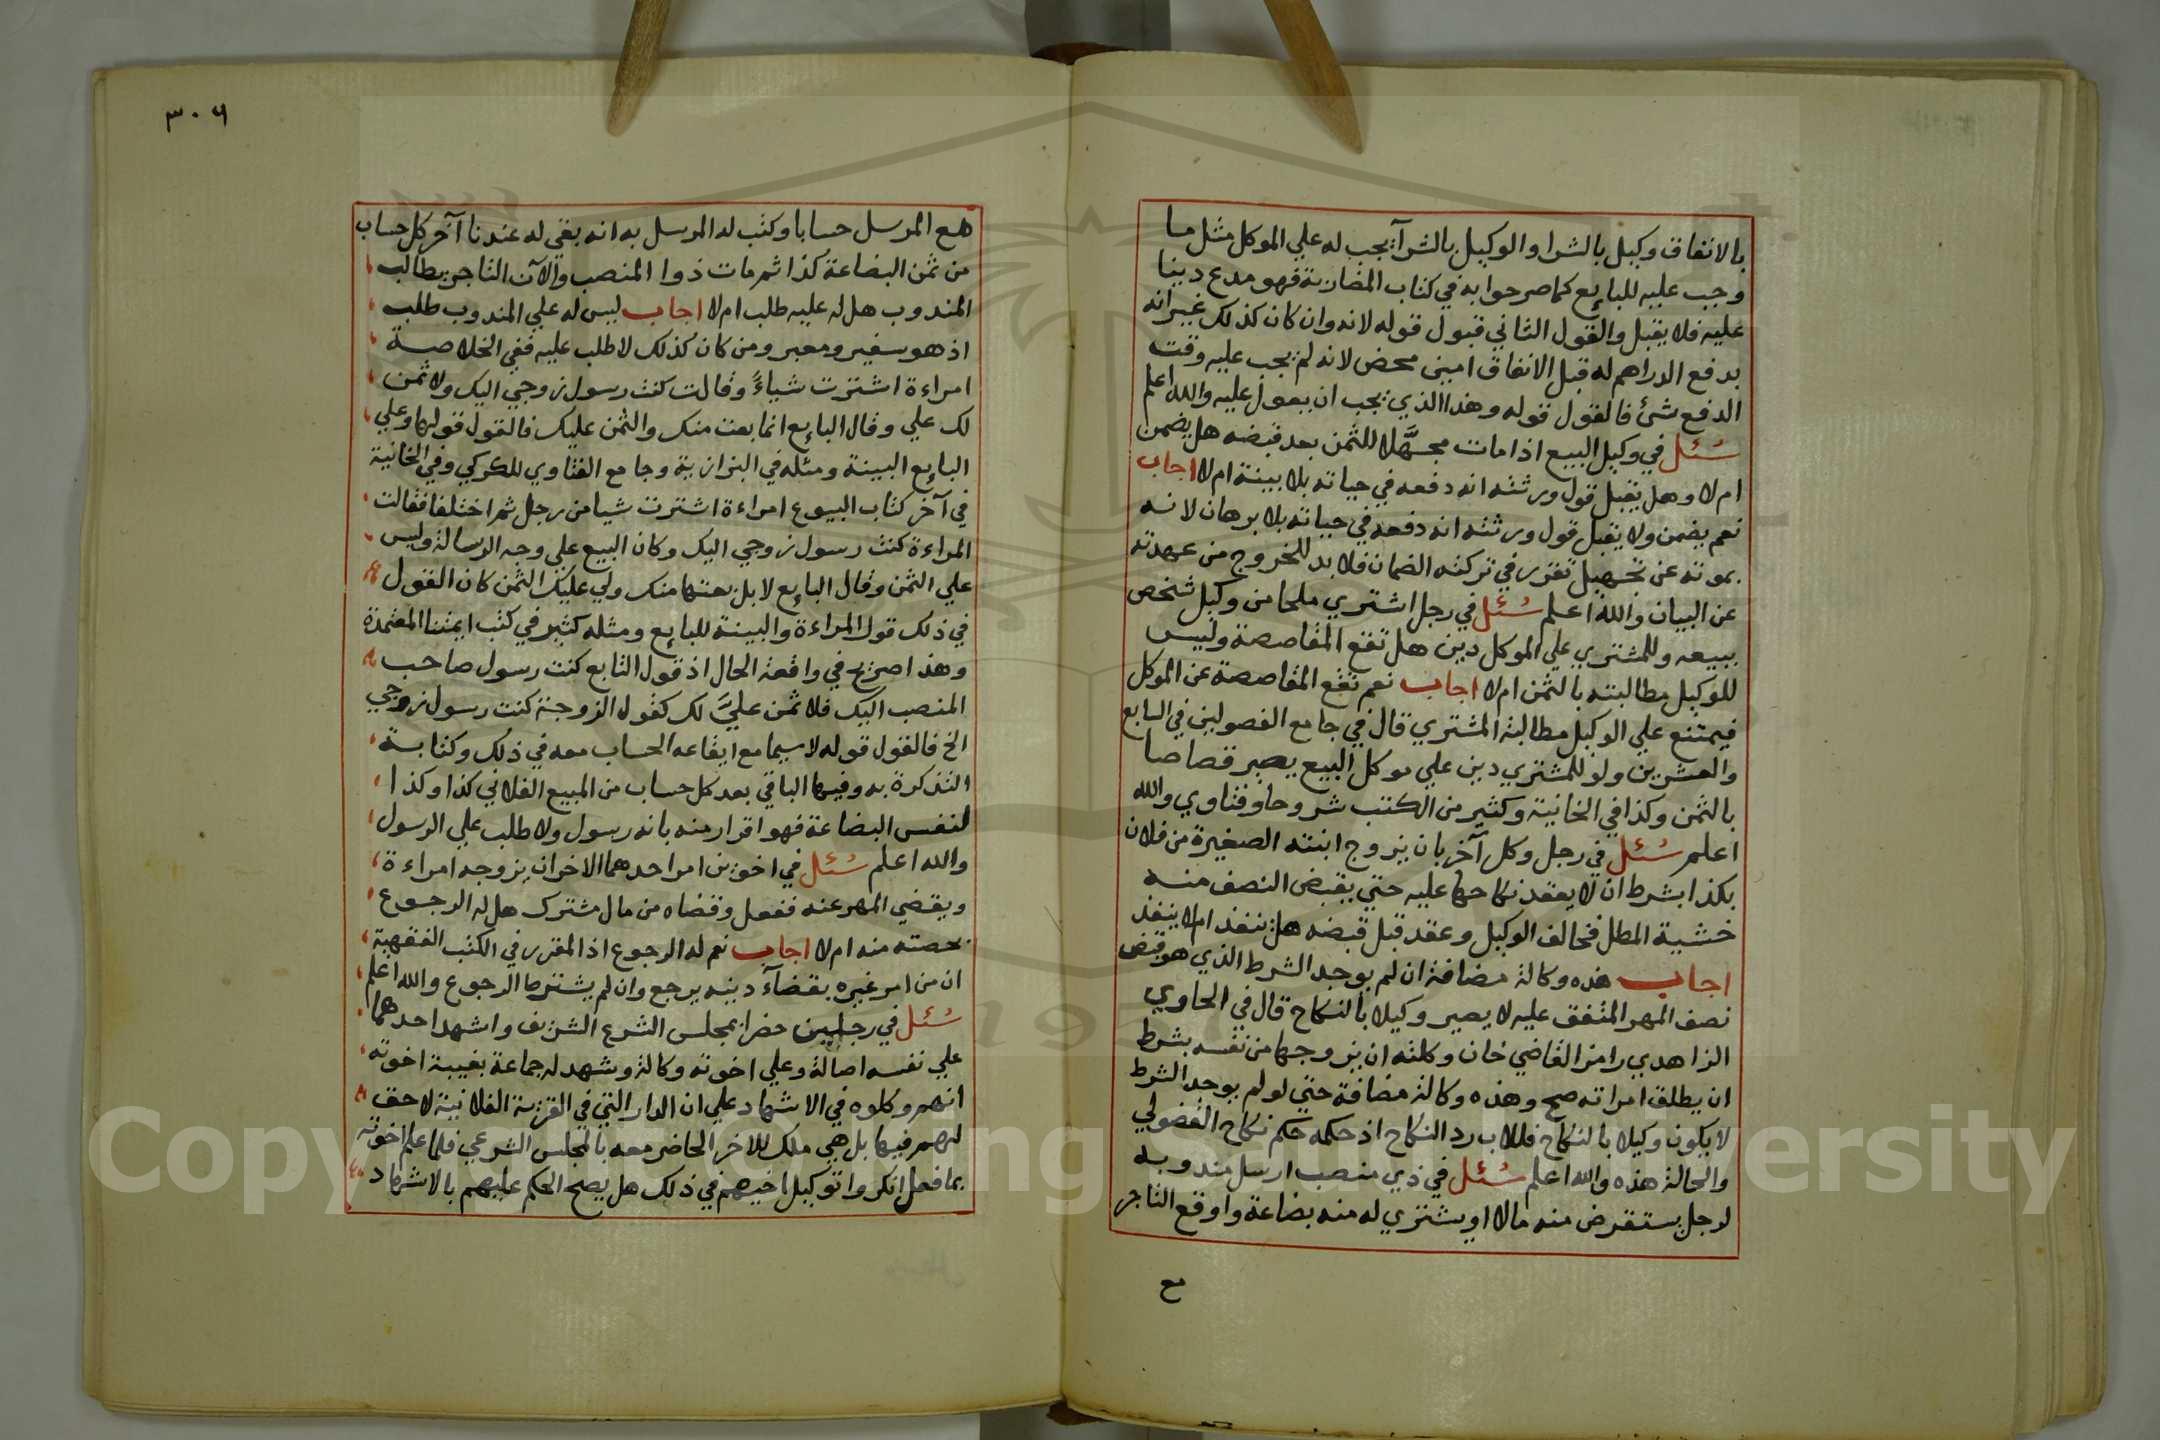 بالاتفاق وكيل بالشرا والوكيل بالشرآء يجب له علي الموكل مثل ما
وجب عليه للبايع كما صرحوا به في كتاب المضاربة فهو مدع دينا
عليه فلا يقبل والقول الثاني قبول قوله لانه وان كان كذلك غير انه
بدفع الدراهم له قبل الاتفاق امين محض لانه لم يجب عليه وقت
الدفع شئ فالقول قوله وهذا الذي يجب ان يعول عليه والله اعلم
سُئل في وكيل البيع اذا مات مجهّلا للثمن بعد قبضه هل يضمن
ام لا وهل يقبل قول ورثته انه دفعه في حياته بلا بينة ام لا اجاب
نعم يضمن ولا يقبل قول ورثته انه دفعه في حياته بلا برهان لانه
بموته عن تجهيل تقرر في تركته الضمان فلا بد للخروج من عهدته
عن البيان والله اعلم سُئل في رجل اشتري ملحا من وكيل شخص
ببيعه وللمشتري علي الموكل دين هل تقع المقاصصة وليس
للوكيل مطالبته بالثمن ام لا اجاب نعم تقع المقاصصة عن الموكل
فيمتنع علي الوكيل مطالبة المشتري قال في جامع الفصولين في السابع
والعشرين ولو للمشتري دين علي موكل البيع يصير قصاصا
بالثمن وكذا في الخانية وكثير من الكتب شروحا وفتاوي والله
اعلم سُئل في رجل وكل آخر بان يزوج ابنته الصغيرة من فلان
بكذا بشرط ان لا يعقد نكاحها عليه حتي يقبض النصف منه
خشية المطل فخالف الوكيل وعقد قبل قبضه هل ينفذ ام لا ينفذ
اجاب هذه وكالة مضافة ان لم يوجد الشرط الذي هو قبض
نصف المهر المتفق عليه لا يصير وكيلا بالنكاح قال في الحاوي
الزاهدي رامزا لقاضي خان وكلته ان يزوجها من نفسه بشرط
ان يطلق امراته صح وهذه وكالة مضافة حتي لو لم يوجد الشرط
لا يكون وكيلا بالنكاح فللاب رد النكاح اذ حكمه حكم نكاح الفضولي
والحالة هذه والله اعلم سُئل في ذي منصب ارسل مندوبه
لرجل يستقرض منه مالا او يشتري له منه بضاعة واوقع التاجر
مع
٣٠٦
مع المرسل حسابا وكتب له المرسل به انه بقي له عندنا آخر كل حساب
من ثمن البضاعة كذا ثم مات ذوا المنصب والآن التاجر يطالب
المندوب هل له عليه طلب ام لا اجاب ليس له علي المندوب طلب
اذ هو سفير ومعبر ومن كان كذلك لا طلب عليه ففي الخلاصة
امراءة اشترت شياءً وقالت كنت رسول زوجي اليك ولا ثمن
لك علي وقال البايع انما بعت منك والثمن عليك فالقول قولها وعلي
البايع البينة ومثله في البزازية وجامع الفتاوي للكركي وفي الخانية
في آخر كتاب البيوع امراءة اشترت شيا من رجل ثم اختلفا فقالت
المراءة كنت رسول زوجي اليك وكان البيع علي وجه الرسالة وليس
علي الثمن وقال البايع لا بل بعتها منك ولي عليك الثمن كان القول
في ذلك قول المراءة والبينة للبايع ومثله كثير في كتب ايمتنا المعتمدة
وهذا صريح في واقعة الحال اذ قول التابع كنت رسول صاحب
المنصب اليك فلا ثمن عليَّ لك كقول الزوجة كنت رسول زوجي
الخ فالقول قوله لا سيما مع ايقاعه الحساب معه في ذلك وكتابة
التذكرة به وفيها الباقي بعد كل حساب من المبيع الفلاني كذا وكذا
لنفس البضاعة فهو اقرار منه بانه رسول ولا طلب علي الرسول
والله اعلم سُئل في اخوين امر احدهما الاخر ان يزوجه امراءة
ويقضي المهر عنه ففعل وقضاه من مال مشترك هل له الرجوع
بحصته منه ام لا اجاب نعم له الرجوع اذ المقرر في الكتب الفقهية
ان من امر غيره بقضآء دينه يرجع وان لم يشترط الرجوع والله اعلم
سُئل في رجلين حضرا بمجلس الشرع الشريف واشهد احدهما
علي نفسه اصالة وعلي اخوته وكالة وشهد له جماعة بغيبة اخوته
انهم وكلوه في الاشهاد علي ان الدار التي في القرية الفلانية لا حق
لهم فيها بل هي ملك للاخر الحاضر معه بالمجلس الشرعي فلما علم اخوته
بما فعل انكروا توكيل اخيهم في ذلك هل يصح الحكم عليهم بالاشهاد